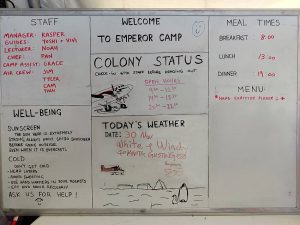 STAFF
MANAGER: KASPER
GUIDES: YOSHI + VIVA
LECTURER: NOAH
CHEF: PAW
CAMP ASSIST: GRACE
AIR CREW: JIM
TYLER
CAM
TIM
WELL-BEING
SUNSCREEN
THE SUN HERE IS EXTREMELY
STRONG. ALWAYS APPLY SUNSCREEN
BEFORE GOING OUTSIDE
EVEN WHEN IT IS OVERCAST.
COLD
DON'T GET COLD
- WEAR LAYERS
- AVOID SWEATING
- USE HAND WARMERS IN YOUR POCKETS
- EAT AND DRINK REGULARLY
ASK US FOR HELP!
WELCOME
TO EMPEROR CAMP
COLONY STATUS
CHECK-IN WITH STAFF BEFORE HEADING OUT
OPEN HOURS
TODAY'S WEATHER
DATE: 30 Nov
White & Windy
MEAL TIMES
BREAKFAST 8:00
LUNCH 13:00
DINNER 19:00
MENU